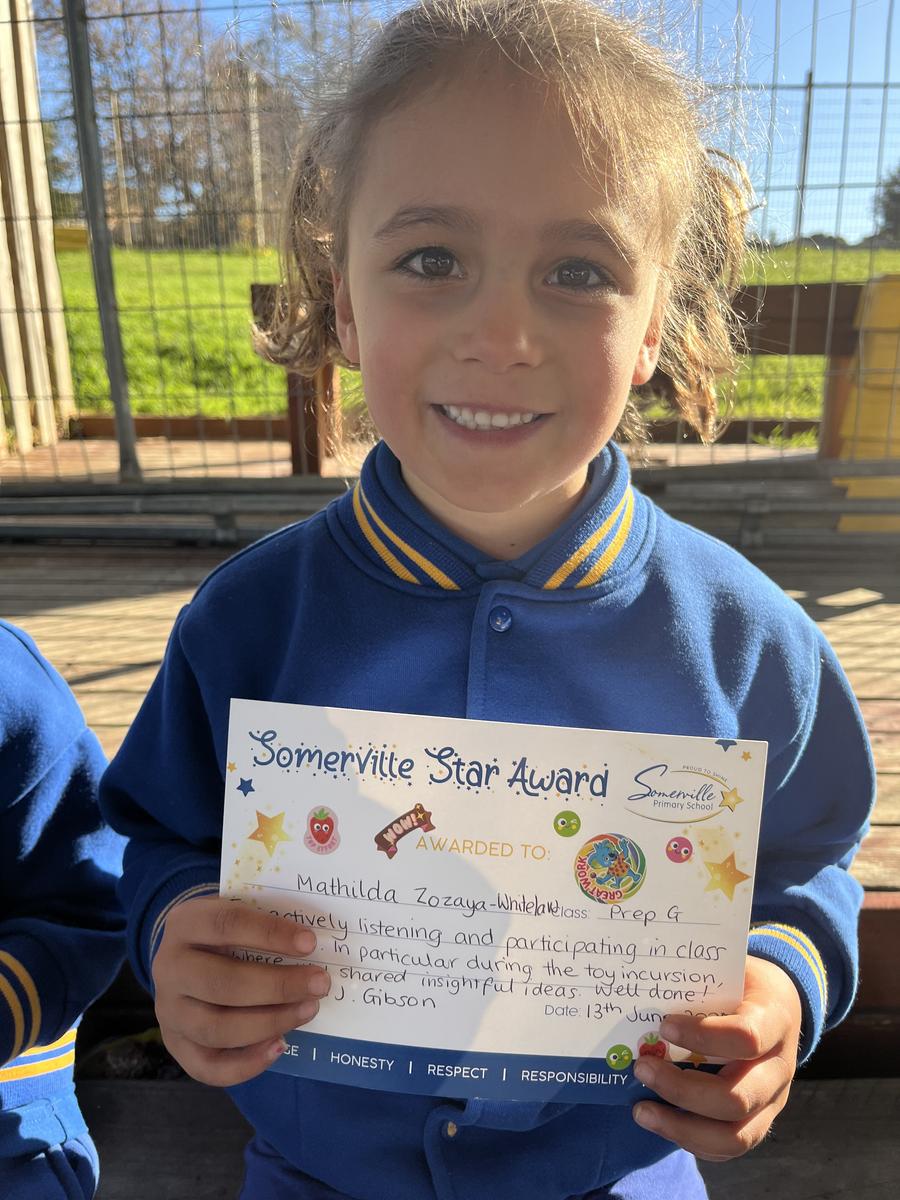 Somerville Star Award
PROUD TO SHINE
Somerville
Primary School
WOW!
AWARDED TO:
GREAT WORK
Mathilda Zozaya-Whitelaw Class: Prep G
actively listening and participating in class
. In particular during the toy incursion,
where shared insightful ideas. Well done!
J. Gibson Date: 13th June
HONESTY | RESPECT | RESPONSIBILITY